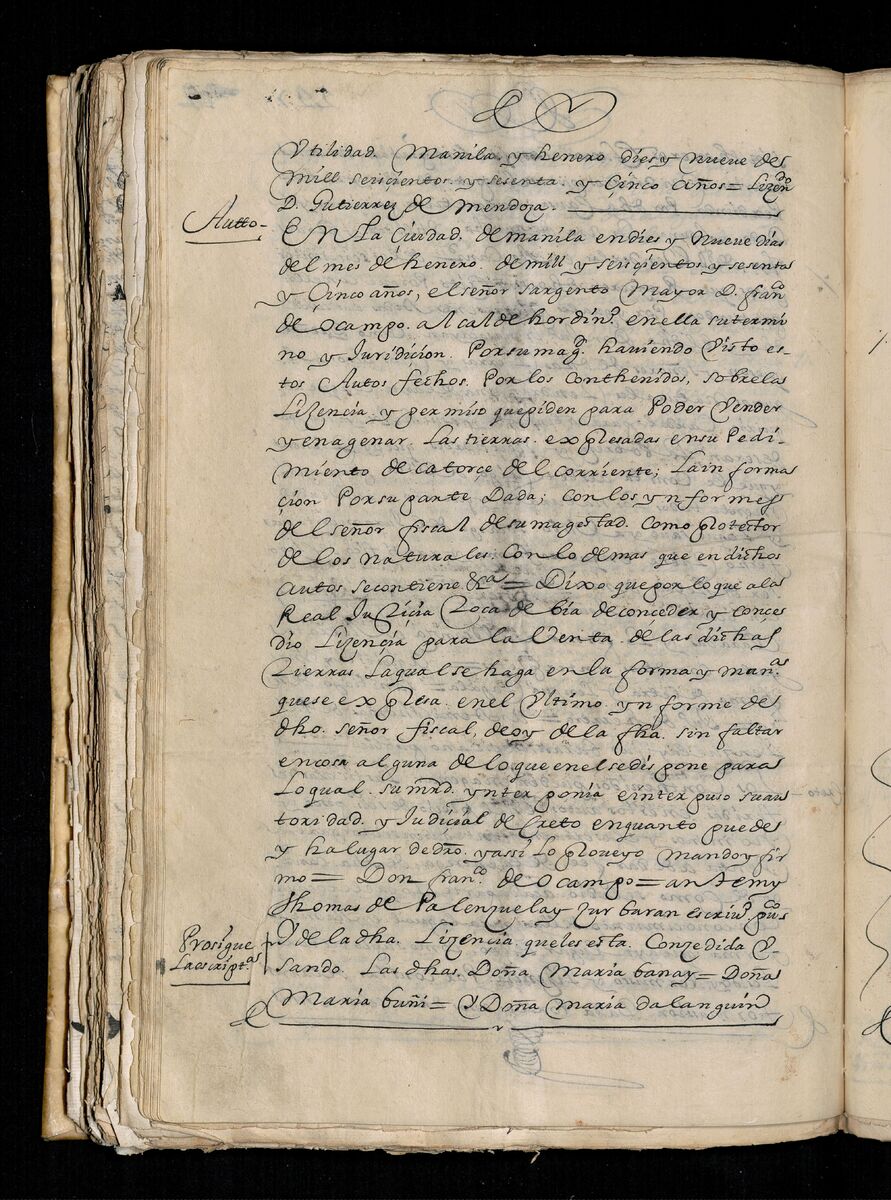 Vtilidad. Manila. y henero dies y nueve de
mill seiscientos. y sesenta. y Çinco años= Lizendo
D. Gutierrez de Mendoza.
Autto.
EN La Çiudad. de manila en dies y nueve dias
del mes de henero. de mill y seiscientos y sesenta
y Çinco años, el señor sargento Mayor D. franco
de Ocampo. alcalde hordino. en ella su termi
no y Juridicion. Por su magd. haviendo Visto es-
tos Autos fechos. Por los conthenidos, sobre las
Lizencia y permiso que piden para Poder Vender
y enagenar. Las tierras. expresadas en su Pedi-
miento de catorçe del corriente; La informa
çion Por su parte Dada; con los ynformes
del señor fiscal de su magestad. como protector
de los naturales; con lo demas que en dichos
autos se contiene &ra = Dixo que por lo que a la
Real Justicia Toca debia de conceder y conçe
dio Lizençia para la Venta de las dichas
Tierras La qual se haga en la forma y manra
que se expresa en el Vltimo ynforme de
dho. señor fiscal, de oy de la fha. sin faltar
en cosa alguna de lo que en el se dispone para
Lo qual. su mrd. ynterponia e interpuso su au
toridad. y Judiçial decreto en quanto puede
y ha lugar de dro. y assi lo proveyo mando y fir
mo= Don franco. de Ocampo= ante my
Thomas de Palenzuela y Zurbaran escrivo. puco
Prosigue
La escripta.
Y de la dha. Lizençia que les esta. Conzedida V-
sando. Las dhas. Doña Maria banay= Doña
Maria buñi= Y Doña Maria dalanguin